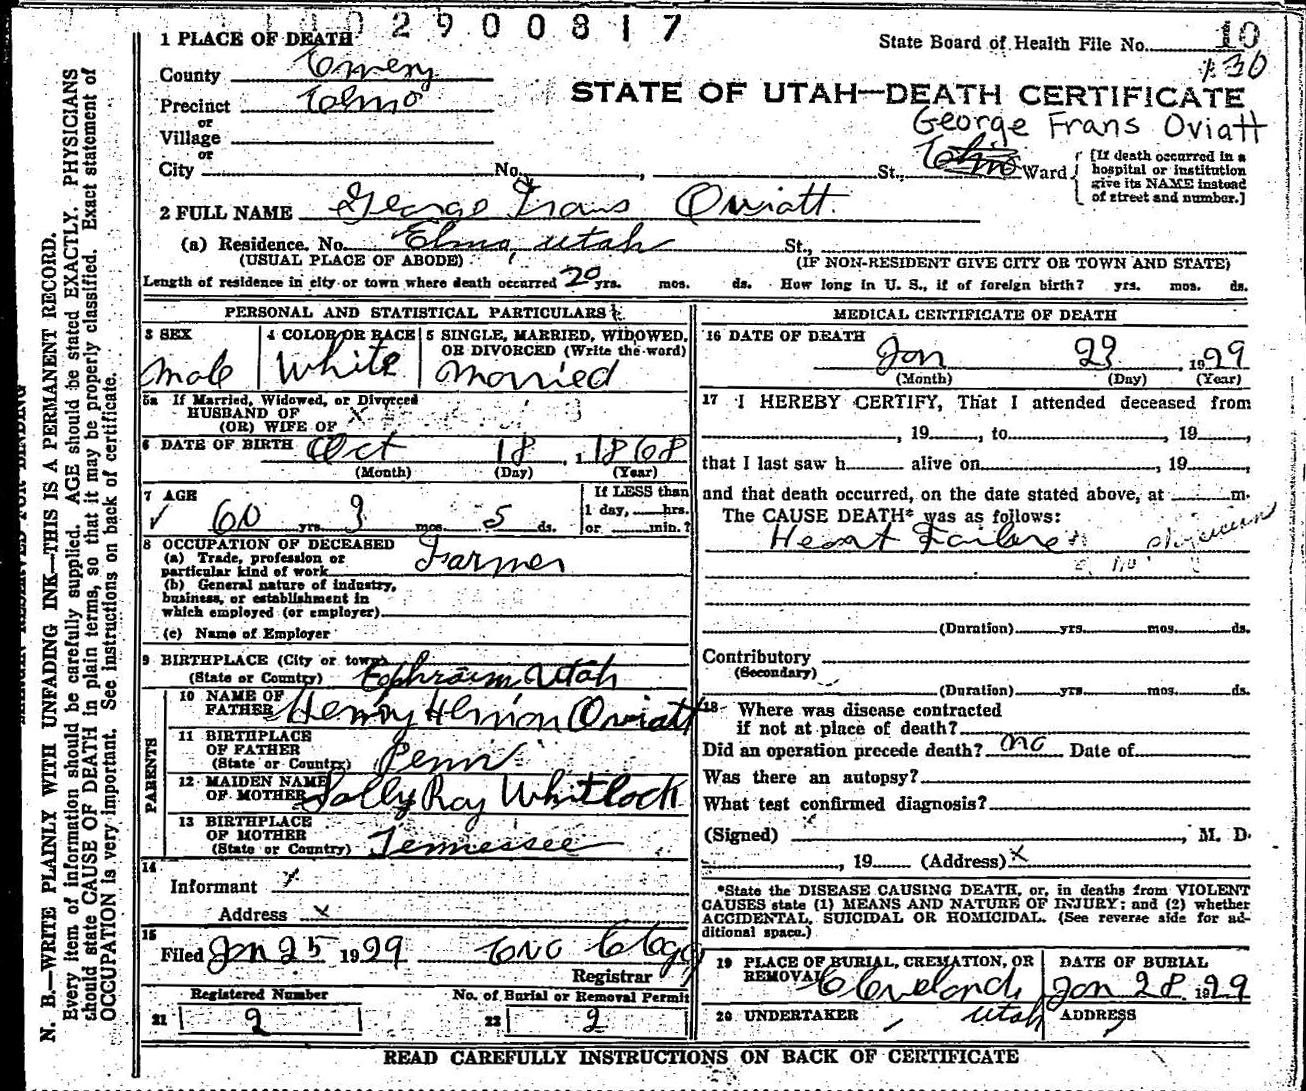 2900817
1 PLACE OF DEATH
State Board of Health File No. 10
130
County Emery
STATE OF UTAH—DEATH CERTIFICATE
Precinct Elmo
George Frans Oviatt
or
Village
or
City No. , St., Elmo Ward
[If death occurred in a hospital or institution give its NAME instead of street and number.]
2 FULL NAME George Frans Oviatt.
(a) Residence. No. Elmo, Utah St.,
(USUAL PLACE OF ABODE) (IF NON-RESIDENT GIVE CITY OR TOWN AND STATE)
Length of residence in city or town where death occurred 20 yrs. mos. ds. How long in U. S., if of foreign birth? yrs. mos. ds.
PERSONAL AND STATISTICAL PARTICULARS
3 SEX
Male
4 COLOR OR RACE
White
5 SINGLE, MARRIED, WIDOWED, OR DIVORCED (Write the word)
Married
5a If Married, Widowed, or Divorced
HUSBAND OF
(OR) WIFE OF X
6 DATE OF BIRTH Oct 18, 1868
(Month) (Day) (Year)
7 AGE
60 yrs. 3 mos. 5 ds.
If LESS than
1 day, hrs.
or min.?
8 OCCUPATION OF DECEASED
(a) Trade, profession or
particular kind of work Farmer
(b) General nature of industry,
business, or establishment in
which employed (or employer)
(c) Name of Employer
9 BIRTHPLACE (City or town)
(State or Country) Ephraim Utah
PARENTS
10 NAME OF
FATHER Henry Herrion Oviatt
11 BIRTHPLACE
OF FATHER
(State or Country) Penn
12 MAIDEN NAME
OF MOTHER Sally Ray Whitlock
13 BIRTHPLACE
OF MOTHER
(State or Country) Tennessee
14
Informant X
Address X
15
Filed Jan 25 1929
Registrar
Registered Number
21 2
No. of Burial or Removal Permit
22 2
MEDICAL CERTIFICATE OF DEATH
16 DATE OF DEATH
Jan 23, 1929
(Month) (Day) (Year)
17 I HEREBY CERTIFY, That I attended deceased from
, 19 , to , 19 ,
that I last saw h alive on , 19 ,
and that death occurred, on the date stated above, at m.
The CAUSE DEATH* was as follows:
Heart Failure no physician
(Duration) yrs. mos. ds.
Contributory
(Secondary)
(Duration) yrs. mos. ds.
18 Where was disease contracted
if not at place of death?
Did an operation precede death? no Date of
Was there an autopsy?
What test confirmed diagnosis?
(Signed) , M. D.
, 19 (Address) X
*State the DISEASE CAUSING DEATH, or, in deaths from VIOLENT
CAUSES state (1) MEANS AND NATURE OF INJURY; and (2) whether
ACCIDENTAL, SUICIDAL OR HOMICIDAL. (See reverse side for ad-
ditional space.)
19 PLACE OF BURIAL, CREMATION, OR
REMOVAL Cleveland, Utah
DATE OF BURIAL
Jan 28, 1929
20 UNDERTAKER
ADDRESS
READ CAREFULLY INSTRUCTIONS ON BACK OF CERTIFICATE
N. B.—WRITE PLAINLY WITH UNFADING INK—THIS IS A PERMANENT RECORD.
Every item of information should be carefully supplied. AGE should be stated EXACTLY. PHYSICIANS
should state CAUSE OF DEATH in plain terms, so that it may be properly classified. Exact statement of
OCCUPATION is very important. See instructions on back of certificate.